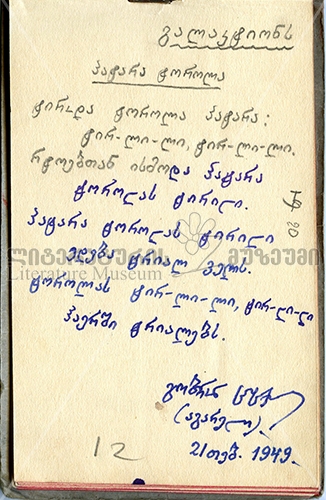 გალაკტიონს
პატარა ტოროლა
ტირ და ტოროლა პატარა:
ტირ-ლი-ლი, ტირ-ლი-ლი.
რტოებთან ისმოდა პატარა
ტოროლას ტირილი.
პატარა ტოროლას ტირილი
ედება ტრიალ ველს.
ლიტერატურის მუზეუმი
Literature Museum
ტოროლას ტირ-ლი-ლი, ტირ-ლი-ლი
ჰაერში ტრიალებს.
(აგარელი).
21 თებ. 1949.
12